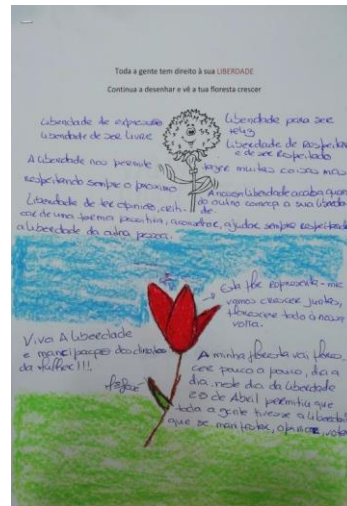 Toda a gente tem direito à sua LIBERDADE
Continua a desenhar e vê a tua floresta crescer
Liberdade de expressão
Liberdade de ser livre
Liberdade para ser
feliz
Liberdade de Respeitar
e de ser Respeitado
A Liberdade nos permite fazer muitas coisas mas
respeitando sempre o proximo
A nossa Liberdade acaba quan-
do outro começa a sua Liberda-
de.
Liberdade de ter opinião, criti-
car de uma forma positiva, aconselhar, ajudar sempre respeitando
a liberdade da outra pessoa.
Esta flor representa-me
vamos crescer juntas,
florescer todo à nossa
volta.
Viva A Liberdade
e mancipação dos direitos
da Mulher!!!
A minha floresta vai flores-
cer pouco a pouco, dia a
dia. neste dia da Liberdade
25 de Abril permitiu que
toda a gente tivesse a liberdade
que se manifestar, opinar, votar